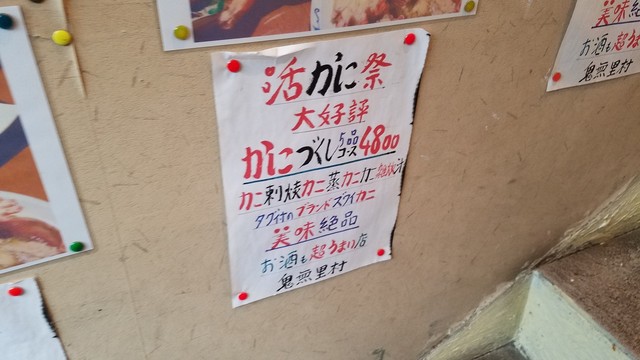 活かに祭
大好評
かにづくし5品コース4800
カニ刺焼カニ蒸カニカニ鉄砲汁
タグ付のブランドズワイカニ
美味絶品
お酒も超うまい店
鬼無里村
美味絶
お酒も超うま
鬼無里村